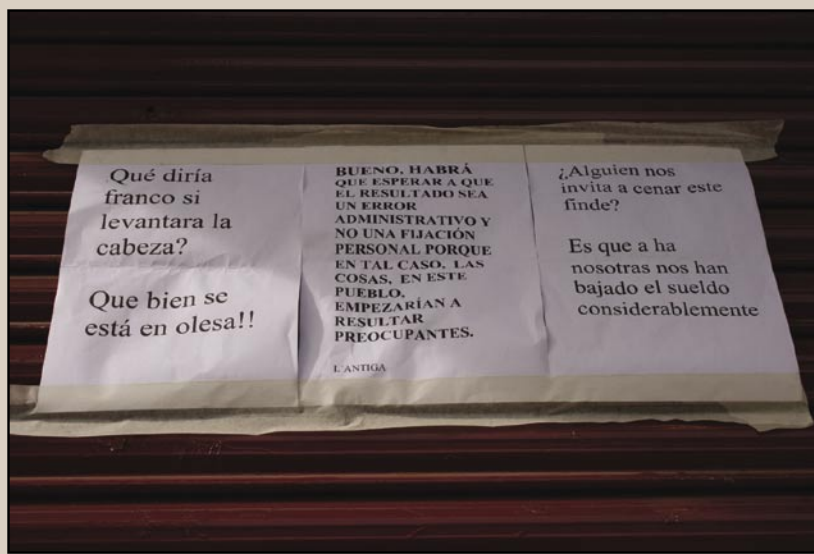 Qué diría
franco si
levantara la
cabeza?
Que bien se
está en olesa!!
BUENO, HABRÁ
QUE ESPERAR A QUE
EL RESULTADO SEA
UN ERROR
ADMINISTRATIVO Y
NO UNA FIJACIÓN
PERSONAL PORQUE
EN TAL CASO, LAS
COSAS, EN ESTE
PUEBLO,
EMPEZARÍAN A
RESULTAR
PREOCUPANTES.
L'ANTIGA
¿Alguien nos
invita a cenar este
finde?
Es que a ha
nosotras nos han
bajado el sueldo
considerablemente